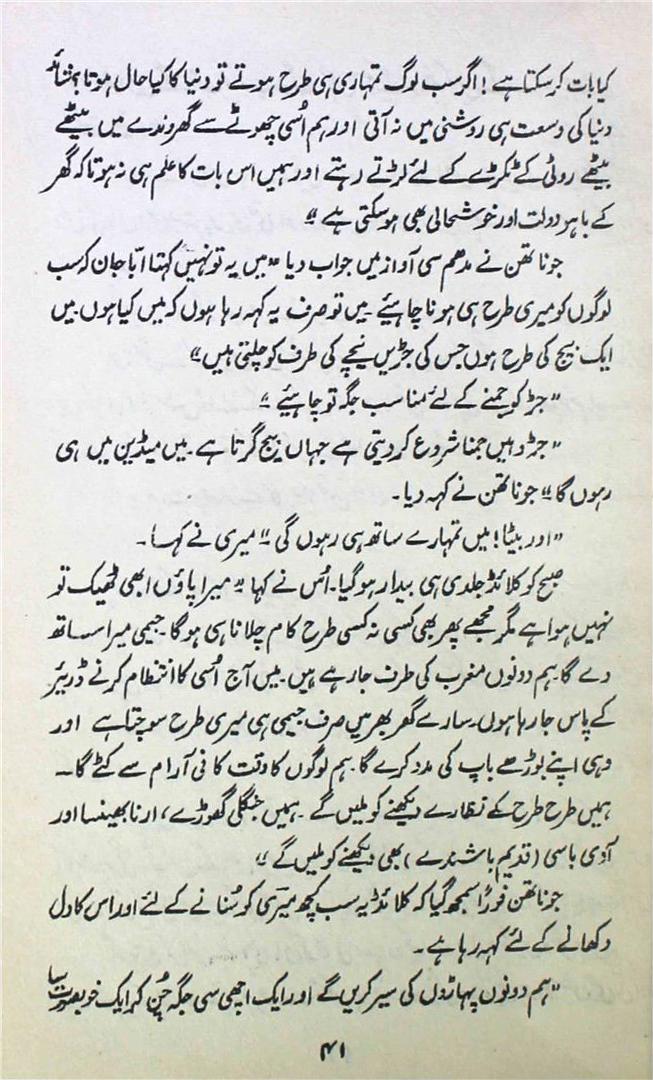 کیا بات کر سکتا ہے! اگر سب لوگ تمہاری ہی طرح ہوتے تو دنیا کا کیا حال ہوتا؟ شائد
دنیا کی وسعت ہی روشنی میں نہ آتی اور ہم اُسی چھوٹے سے گھروندے میں بیٹھے
بیٹھے روٹی کے ٹکڑے کے لئے لڑتے رہتے اور ہمیں اس بات کا علم ہی نہ ہوتا کہ گھر
کے باہر دولت اور خوشحالی بھی ہو سکتی ہے"
جوناتھن نے مدھم سی آواز میں جواب دیا "میں یہ تو نہیں کہتا ابّا جان کہ سب
لوگوں کو میری طرح ہی ہونا چاہیئے۔ میں تو صرف یہ کہہ رہا ہوں کہ میں کیا ہوں۔ میں
ایک بیج کی طرح ہوں جس کی جڑیں نیچے کی طرف کو چلتی ہیں"
"جڑ کو جمنے کے لئے مناسب جگہ تو چاہیئے"
"جڑ وہیں جمنا شروع کر دیتی ہے جہاں بیج گرتا ہے۔ میں میڈین میں ہی
رہوں گا" جوناتھن نے کہہ دیا۔
"اور بیٹا! میں تمہارے ساتھ ہی رہوں گی" میری نے کہا۔
صبح کو کلائڈ جلدی ہی بیدار ہو گیا۔ اُس نے کہا "میرا پاؤں ابھی ٹھیک تو
نہیں ہوا ہے مگر مجھے پھر بھی کسی نہ کسی طرح کام چلانا ہی ہو گا۔ جیمی میرا ساتھ
دے گا۔ ہم دونوں مغرب کی طرف جا رہے ہیں۔ میں آج اُسی کا انتظام کرنے ڈریئر
کے پاس جا رہا ہوں۔ سارے گھر بھر میں صرف جیمی ہی میری طرح سوچتا ہے اور
وہی اپنے بوڑھے باپ کی مدد کرے گا۔ ہم لوگوں کا وقت کافی آرام سے کٹے گا۔
ہمیں طرح طرح کے نظارے دیکھنے کو ملیں گے۔ ہمیں جنگلی گھوڑے، ارنا بھینسا اور
آدی باسی (قدیم باشندے) بھی دیکھنے کو ملیں گے"
جوناتھن فوراً سمجھ گیا کہ کلائڈ یہ سب کچھ میری کو سُنانے کے لئے اور اس کا دل
دکھانے کے لئے کہہ رہا ہے۔
"ہم دونوں پہاڑوں کی سیر کریں گے اور ایک اچھی سی جگہ چُن کر ایک خوبصورت سا
۴۱